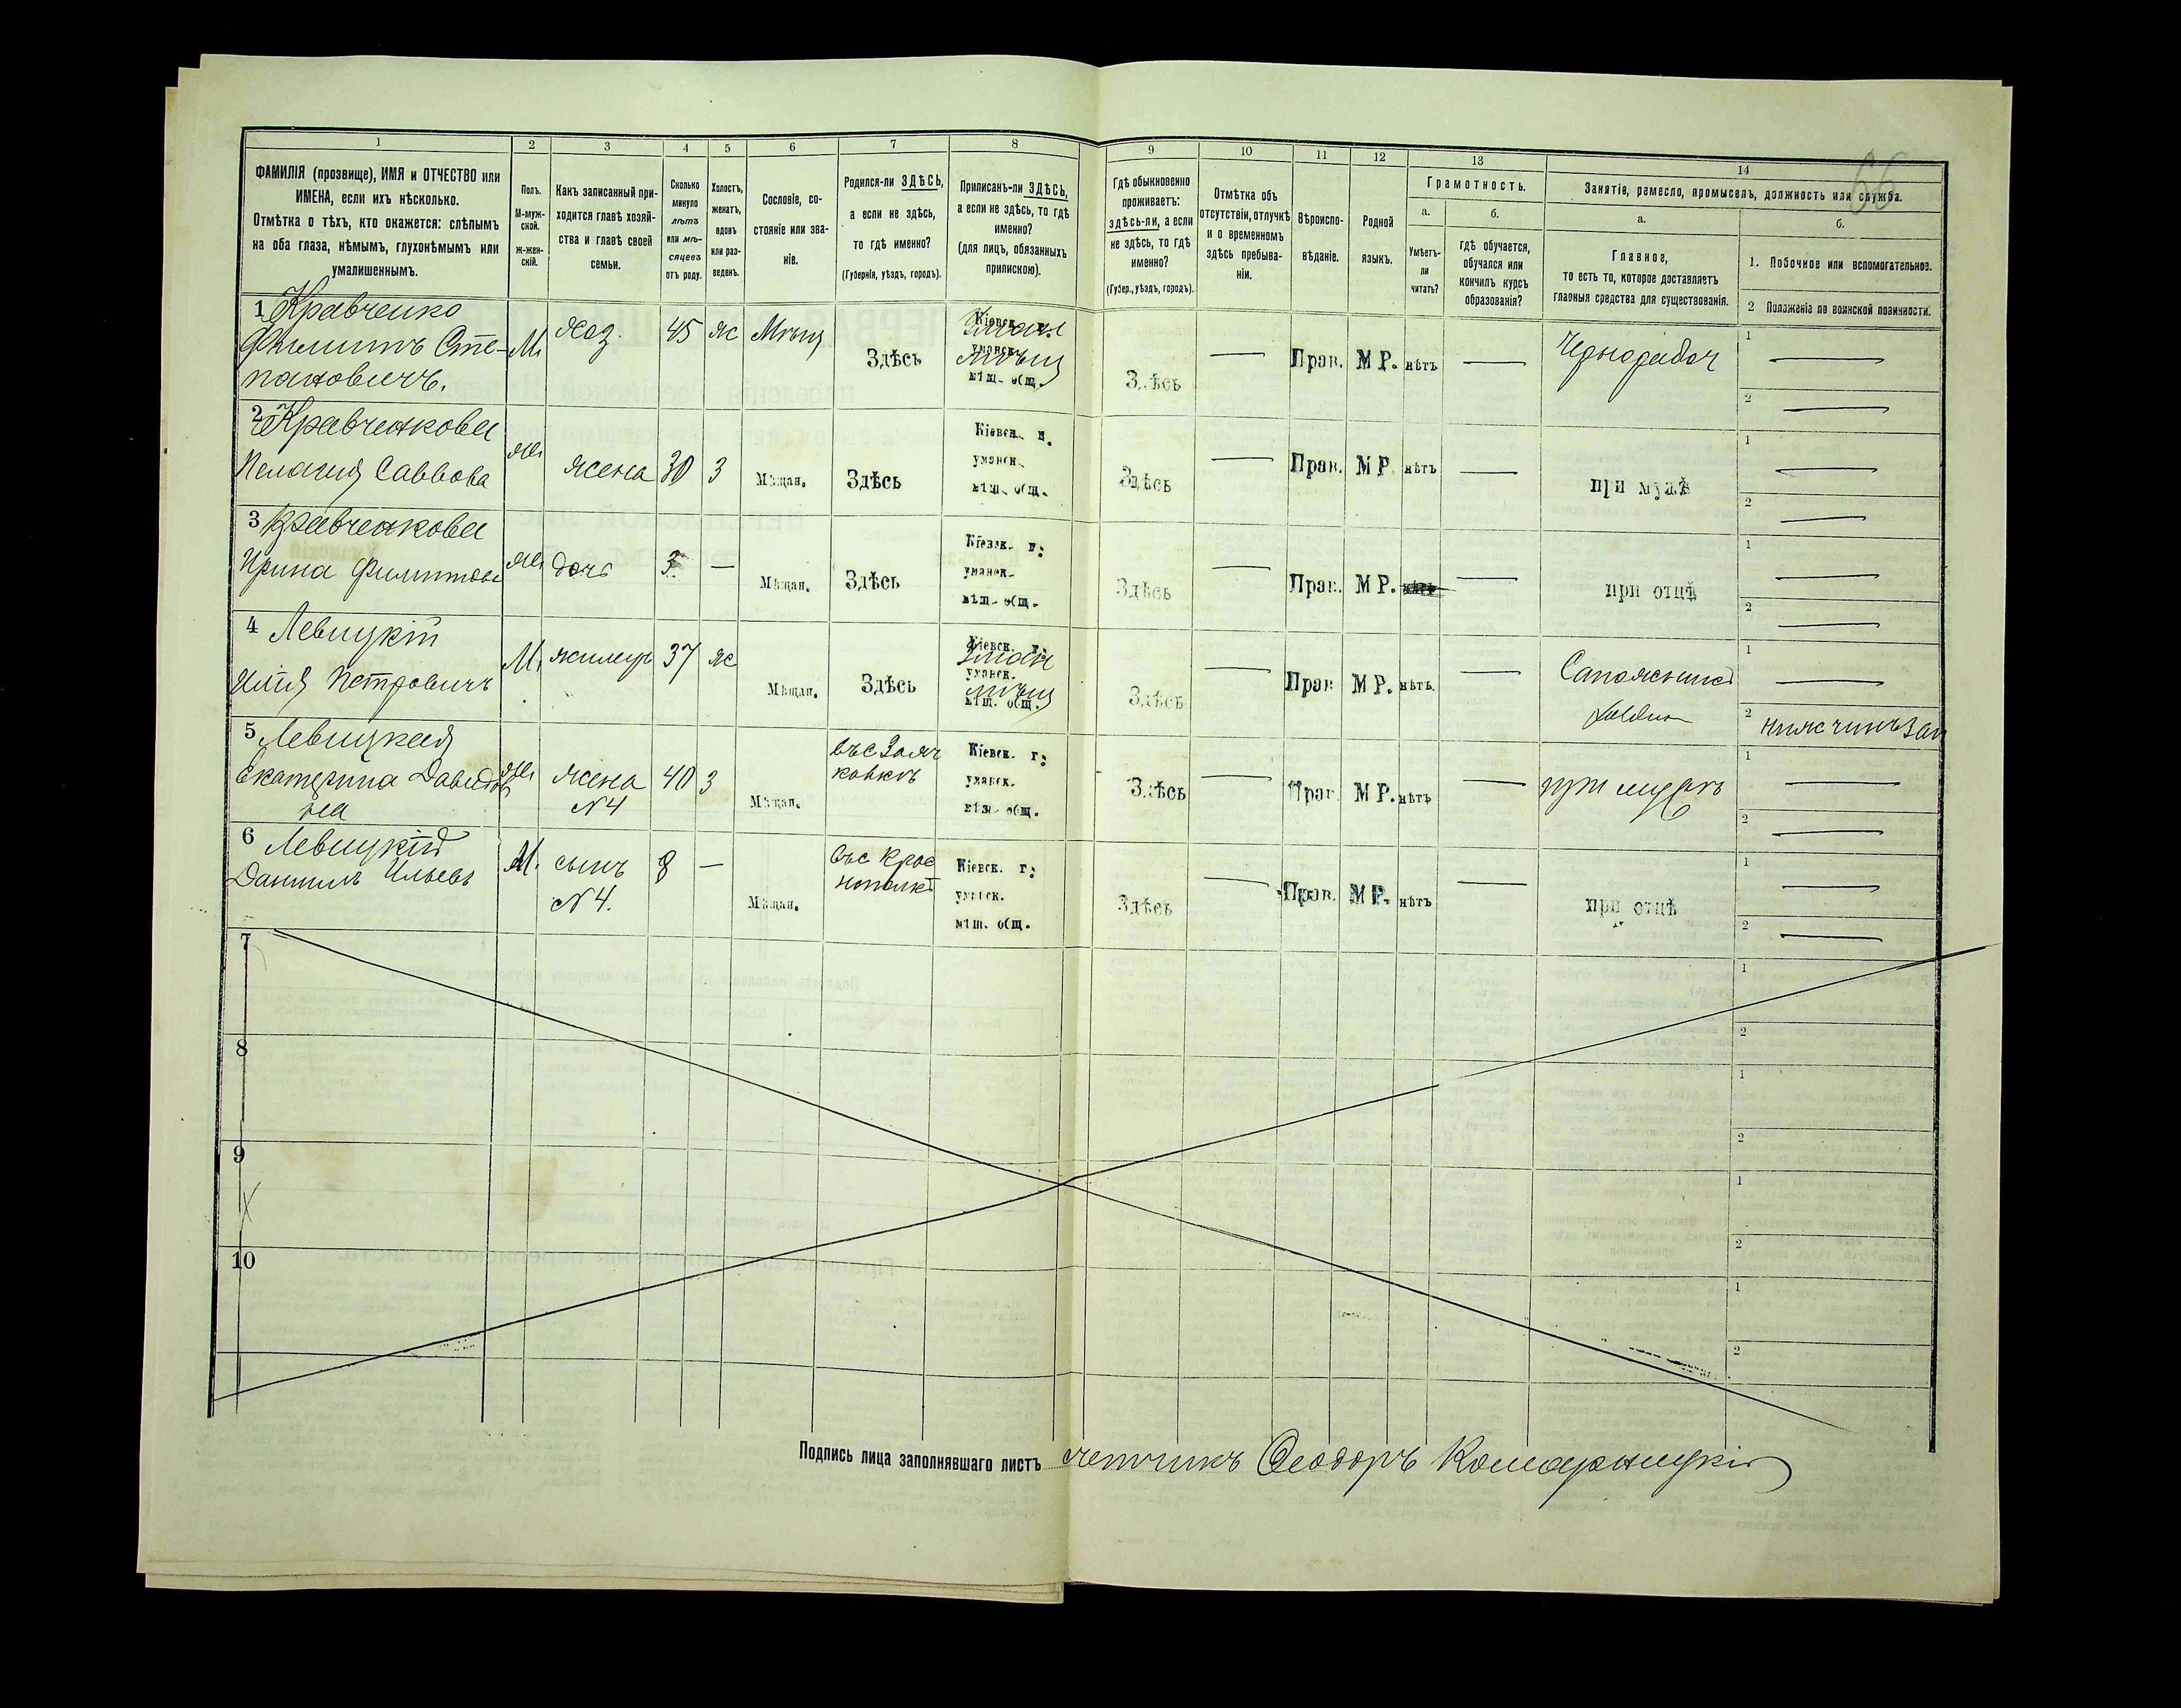 66
1 2 3 4 5 6 7 8 9 10 11 12 13 14
ФАМИЛІЯ (прозвище), ИМЯ и ОТЧЕСТВО или
ИМЕНА, если ихъ нѣсколько.
Отмѣтка о тѣхъ, кто окажется: слѣпымъ
на оба глаза, нѣмымъ, глухонѣмымъ или
умалишеннымъ.
Полъ.
М-муж-
ской.
ж-жен-
скій.
Какъ записанный при-
ходится главѣ хозяй-
ства и главѣ своей
семьи.
Сколько
минуло
лѣтъ
или мѣ-
сяцевъ
отъ роду.
Холостъ,
женатъ,
вдовъ
или раз-
веденъ.
Сословіе, со-
стояніе или зва-
ніе.
Родился-ли ЗДѢСЬ,
а если не здѣсь,
то гдѣ именно?
(Губернія, уѣздъ, городъ).
Приписанъ-ли ЗДѢСЬ,
а если не здѣсь, то гдѣ
именно?
(для лицъ, обязанныхъ
припискою).
Гдѣ обыкновенно
проживаетъ:
здѣсь-ли, а если
не здѣсь, то гдѣ
именно?
(Губер., уѣздъ, городъ).
Отмѣтка объ
отсутствіи, отлучкѣ
и о временномъ
здѣсь пребыва-
ніи.
Вѣроиспо-
вѣданіе.
Родной
языкъ.
Грамотность.
а.
Умѣетъ-
ли
читать?
б.
гдѣ обучается,
обучался или
кончилъ курсъ
образованія?
Занятія, ремесло, промыселъ, должность или служба.
а.
Главное,
то есть то, которое доставляетъ
главныя средства для существованія.
б.
1. Побочное или вспомогательное.
2 Положеніе по воинской повинности.
1 Кравченко
Филиппъ Сте-
пановичъ.
М. хоз. 45 ж Мѣщ Здѣсь
Кіевск. г.
Уман
уманск.
мѣщ
мѣщ. общ.
Здѣсь — Прав. М Р. нѣтъ — Чернорабоч
1 —
2 —
2 Кравченкова
Пелагия Саввова
Ж. жена 30 З Мѣщан. Здѣсь
Кіевск. г.
уманск.
мѣщ. общ.
Здѣсь — Прав. М Р. нѣтъ — при мужѣ
1 —
2 —
3 Кравченкова
Ирина Филиппова
Ж. дочь 3 — Мѣщан. Здѣсь
Кіевск. г:
уманск.
мѣщ. общ.
Здѣсь — Прав. М Р. нѣтъ — при отцѣ
1 —
2 —
4 Левицкій
Илія Петровичъ
М. жилецъ 37 ж Мѣщан. Здѣсь
Кіевск. г:
Уман
уманск.
мѣщ
мѣщ. общ.
Здѣсь — Прав М Р. нѣтъ. — Сапожникъ
1 —
2 нижчинъ зап
5 Левицкая
Екатерина Давидов
на
Ж. жена 40 З Мѣщан.
№ 4
Кіевск. г:
уманск.
мѣщ. общ.
Здѣсь — Прав. М Р. нѣтъ — при мужѣ
1 —
2 —
6 Левицкій
Даниилъ Ильевъ
М. сынъ 8 — Мѣщан.
№ 4.
въ с Крас
нополкѣ
Кіевск. г:
уманск.
мѣщ. общ.
Здѣсь — Прав. М Р. нѣтъ — при отцѣ
1 —
2 —
7
1
2
8
1
2
9
1
2
10
1
2
Подпись лица заполнявшаго листъ счетчикъ Ѳеодоръ Комарницкій